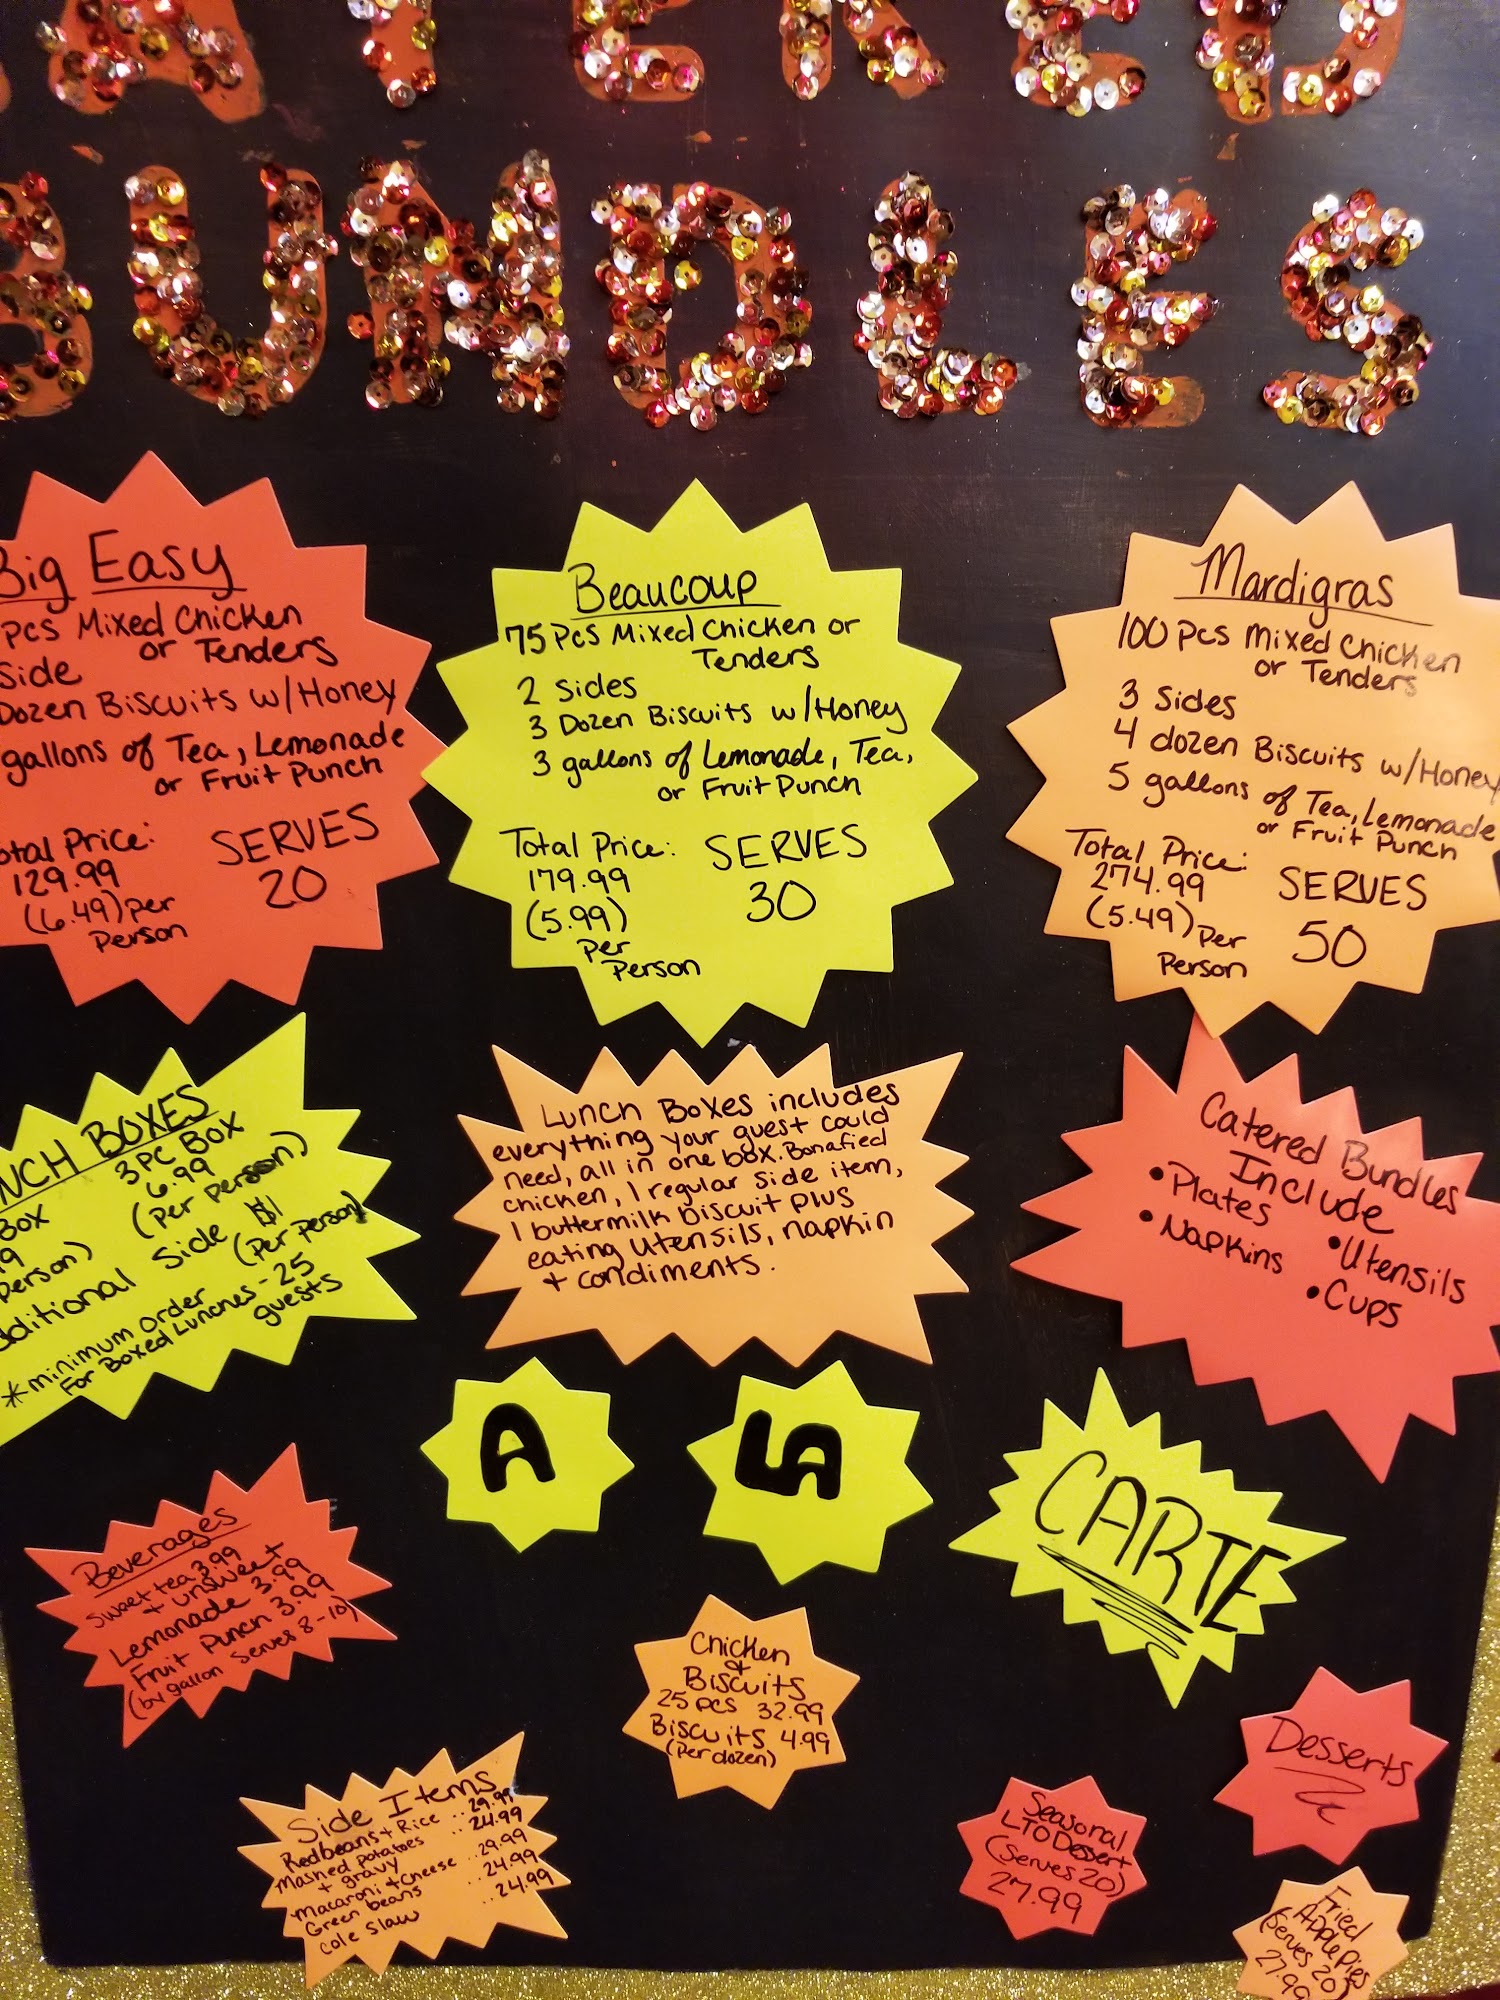 CATERED
BUNDLES
Big Easy
pcs Mixed Chicken
or Tenders
Side
Dozen Biscuits w/Honey
gallons of Tea, Lemonade
or Fruit Punch
Total Price:
129.99
(6.49) per
person
SERVES
20
Beaucoup
75 Pcs Mixed Chicken or
Tenders
2 Sides
3 Dozen Biscuits w/Honey
3 gallons of Lemonade, Tea,
or Fruit Punch
Total Price:
179.99
(5.99)
per
Person
SERVES
30
Mardigras
100 Pcs Mixed Chicken
or Tenders
3 Sides
4 dozen Biscuits w/Honey
5 gallons of Tea, Lemonade
or Fruit Punch
Total Price:
274.99
(5.49) per
Person
SERVES
50
LUNCH BOXES
3 PC BOX
6.99
(per person)
Box
9
person)
additional Side $1
(Per person)
*minimum order
For Boxed Lunches - 25
guests
Lunch Boxes includes
everything your guest could
need, all in one box. Bonafied
chicken, 1 regular side item,
1 buttermilk biscuit plus
eating utensils, napkin
+ condiments.
Catered Bundles
Include
• Plates
• Napkins
• Utensils
• Cups
A
CARTE
Beverages
Sweet tea 3.99
+ unsweet
Lemonade 3.99
Fruit Punch 3.99
(by gallon Serves 8-10)
Chicken
&
Biscuits
25 pcs 32.99
Biscuits 4.99
(Per dozen)
Side Items
Redbeans + Rice .. 29.99
Mashed potatoes .. 24.99
+ gravy
Macaroni + Cheese .. 29.99
Green beans .. 24.99
Cole Slaw .. 24.99
Desserts
Seasonal
LTO Dessert
(Serves 20)
27.99
Fried
Apple Pies
(Serves 20)
27.99